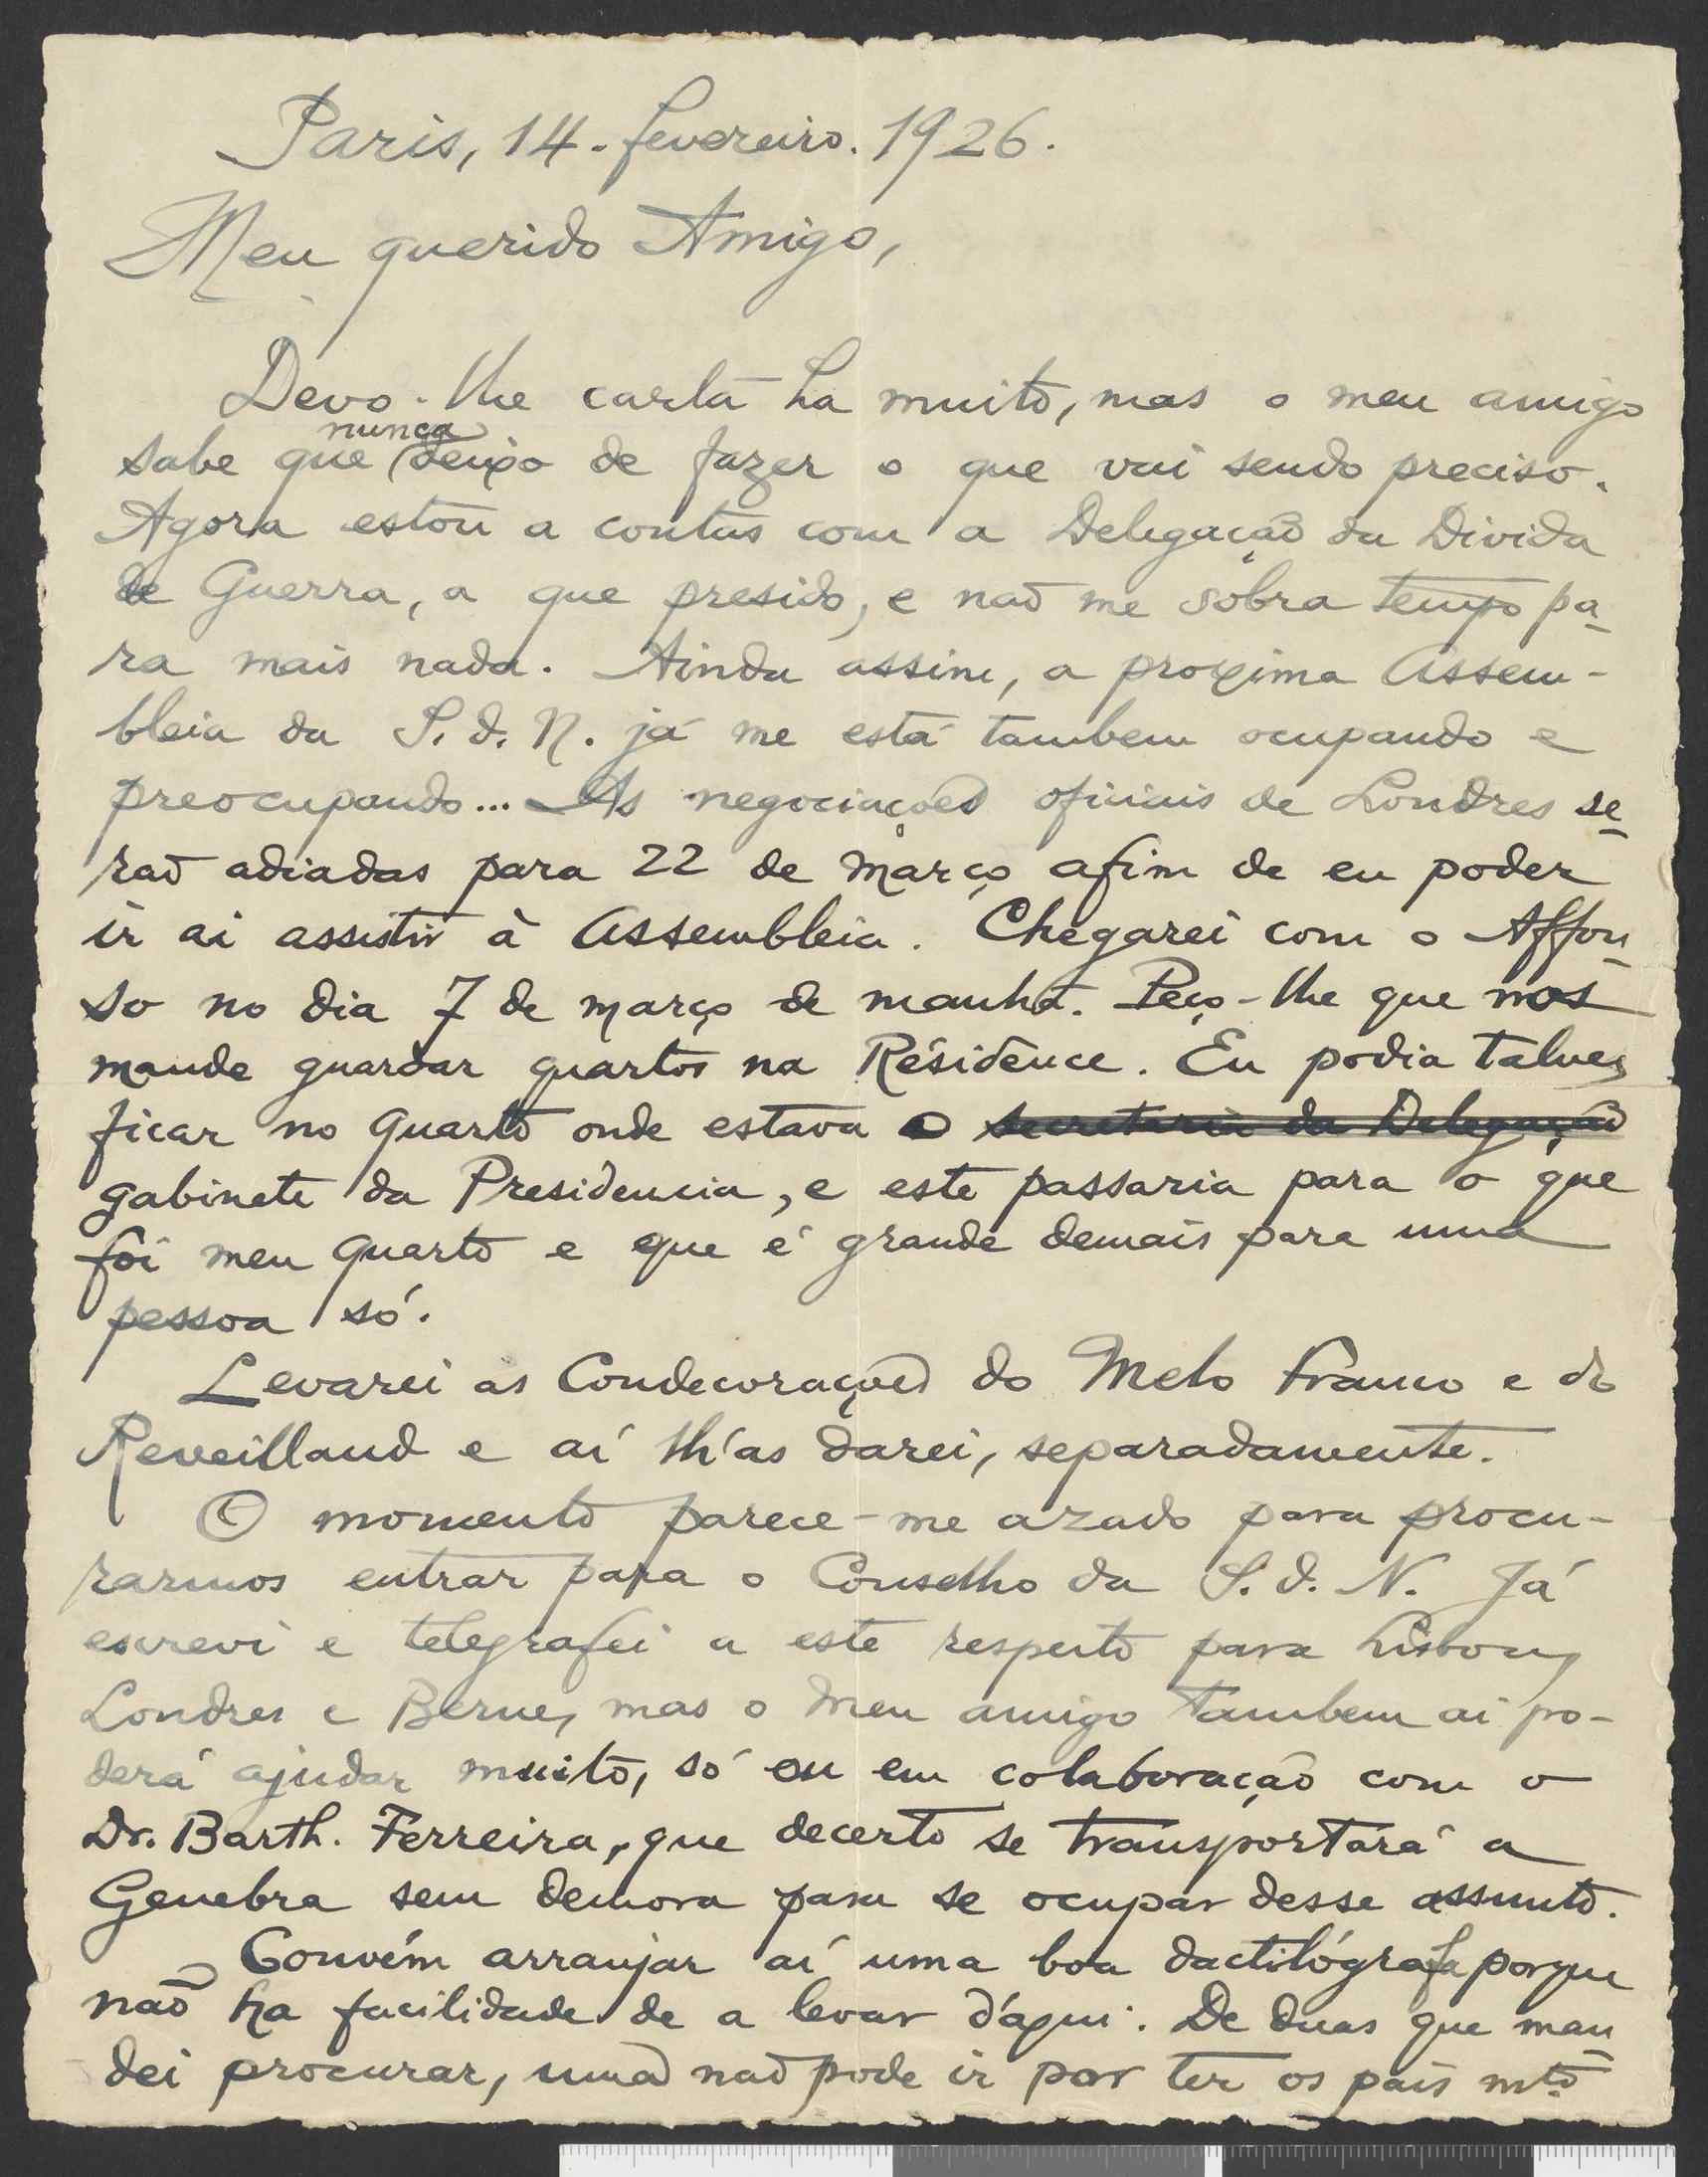 Paris, 14. fevereiro. 1926.
Meu querido Amigo,
Devo-lhe carta ha muito, mas o meu amigo
nunca
sabe que deixo de fazer o que vai sendo preciso.
Agora estou a contas com a Delegação da Divida
de Guerra, a que presido, e não me sobra tempo pa-
ra mais nada. Ainda assim, a proxima Assem-
bleia da S. d. N. já me está tambem ocupando e
preocupando... As negociações oficiais de Londres se-
rão adiadas para 22 de Março afim de eu poder
ir ai assistir à Assembleia. Chegarei com o Affon-
so no dia 7 de março de manhã. Peço-lhe que nos
mande guardar quartos na Résidence. Eu podia talvez
ficar no quarto onde estava o secretaria da Delegação
gabinete da Presidencia, e este passaria para o que
foi meu quarto e que é grande demais para uma
pessoa só.
Levarei as Condecorações do Melo Franco e do
Reveillaud e aí lh'as darei, separadamente.
O momento parece-me azado para procu-
rarmos entrar para o Conselho da S. d. N. Já
escrevi e telegrafei a este respeito para Lisboa,
Londres e Berne, mas o meu amigo tambem ai po-
derá ajudar muito, só ou em colaboração com o
Dr. Barth. Ferreira, que decerto se transportará a
Genebra sem demora para se ocupar desse assunto.
Convém arranjar aí uma boa dactilógrafa porque
não ha facilidade de a levar d'aqui. De duas que man-
dei procurar, uma não pode ir por ter os pais mto